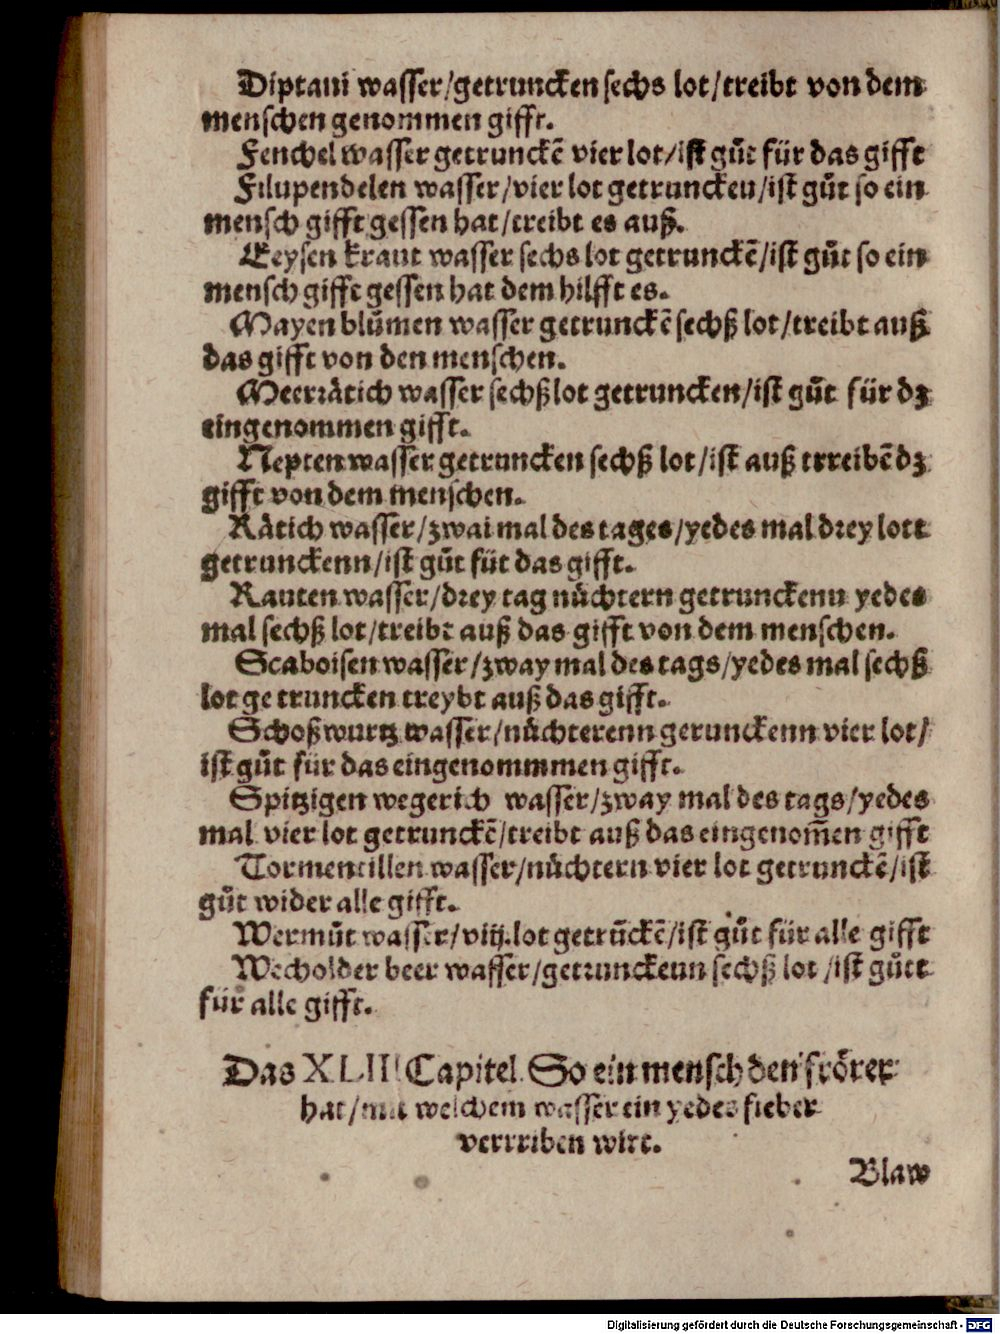 Diptani wasser/getruncken sechs lot/treibt von dem
menschen genommen gifft.
Fenchel wasser getrunckē vier lot/ist gůt für das gifft
Filupendelen wasser/vier lot getruncken/ist gůt so ein
mensch gifft gessen hat/treibt es auß.
Leysen kraut wasser sechs lot getrunckē/ist gůt so ein
mensch gifft gessen hat dem hilfft es.
Mayen blůmen wasser getrunckē sechß lot/treibt auß
das gifft von den menschen.
Meerrätich wasser sechß lot getruncken/ist gůt für dz
eingenommen gifft.
Nepten wasser getruncken sechß lot/ist auß trreibē dz
gifft von dem menschen.
Rätich wasser/zwai mal des tages/yedes mal drey lott
getrunckenn/ist gůt füt das gifft.
Rauten wasser/drey tag nüchtern getrunckenn yedes
mal sechß lot/treibt auß das gifft von dem menschen.
Scaboisen wasser/zway mal des tags/yedes mal sechß
lot ge truncken treybt auß das gifft.
Schoßwurtz wasser/nüchterenn gerunckenn vier lot/
ist gůt für das eingenommmen gifft.
Spitzigen wegerich wasser/zway mal des tags/yedes
mal vier lot getrunckē/treibt auß das eingenom̄en gifft
Tormentillen wasser/nüchtern vier lot getrunckē/ist
gůt wider alle gifft.
Wermůt wasser/viij.lot getrūckē/ist gůt für alle gifft
Wecholder beer wasser/getrunckenn sechß lot/ist gůtt
für alle gifft.
Das XLII Capitel. So ein mensch den frörer
hat/mit welchem wasser ein yedes fieber
vertriben wirt.
Blaw
Digitalisierung gefördert durch die Deutsche Forschungsgemeinschaft - DFG